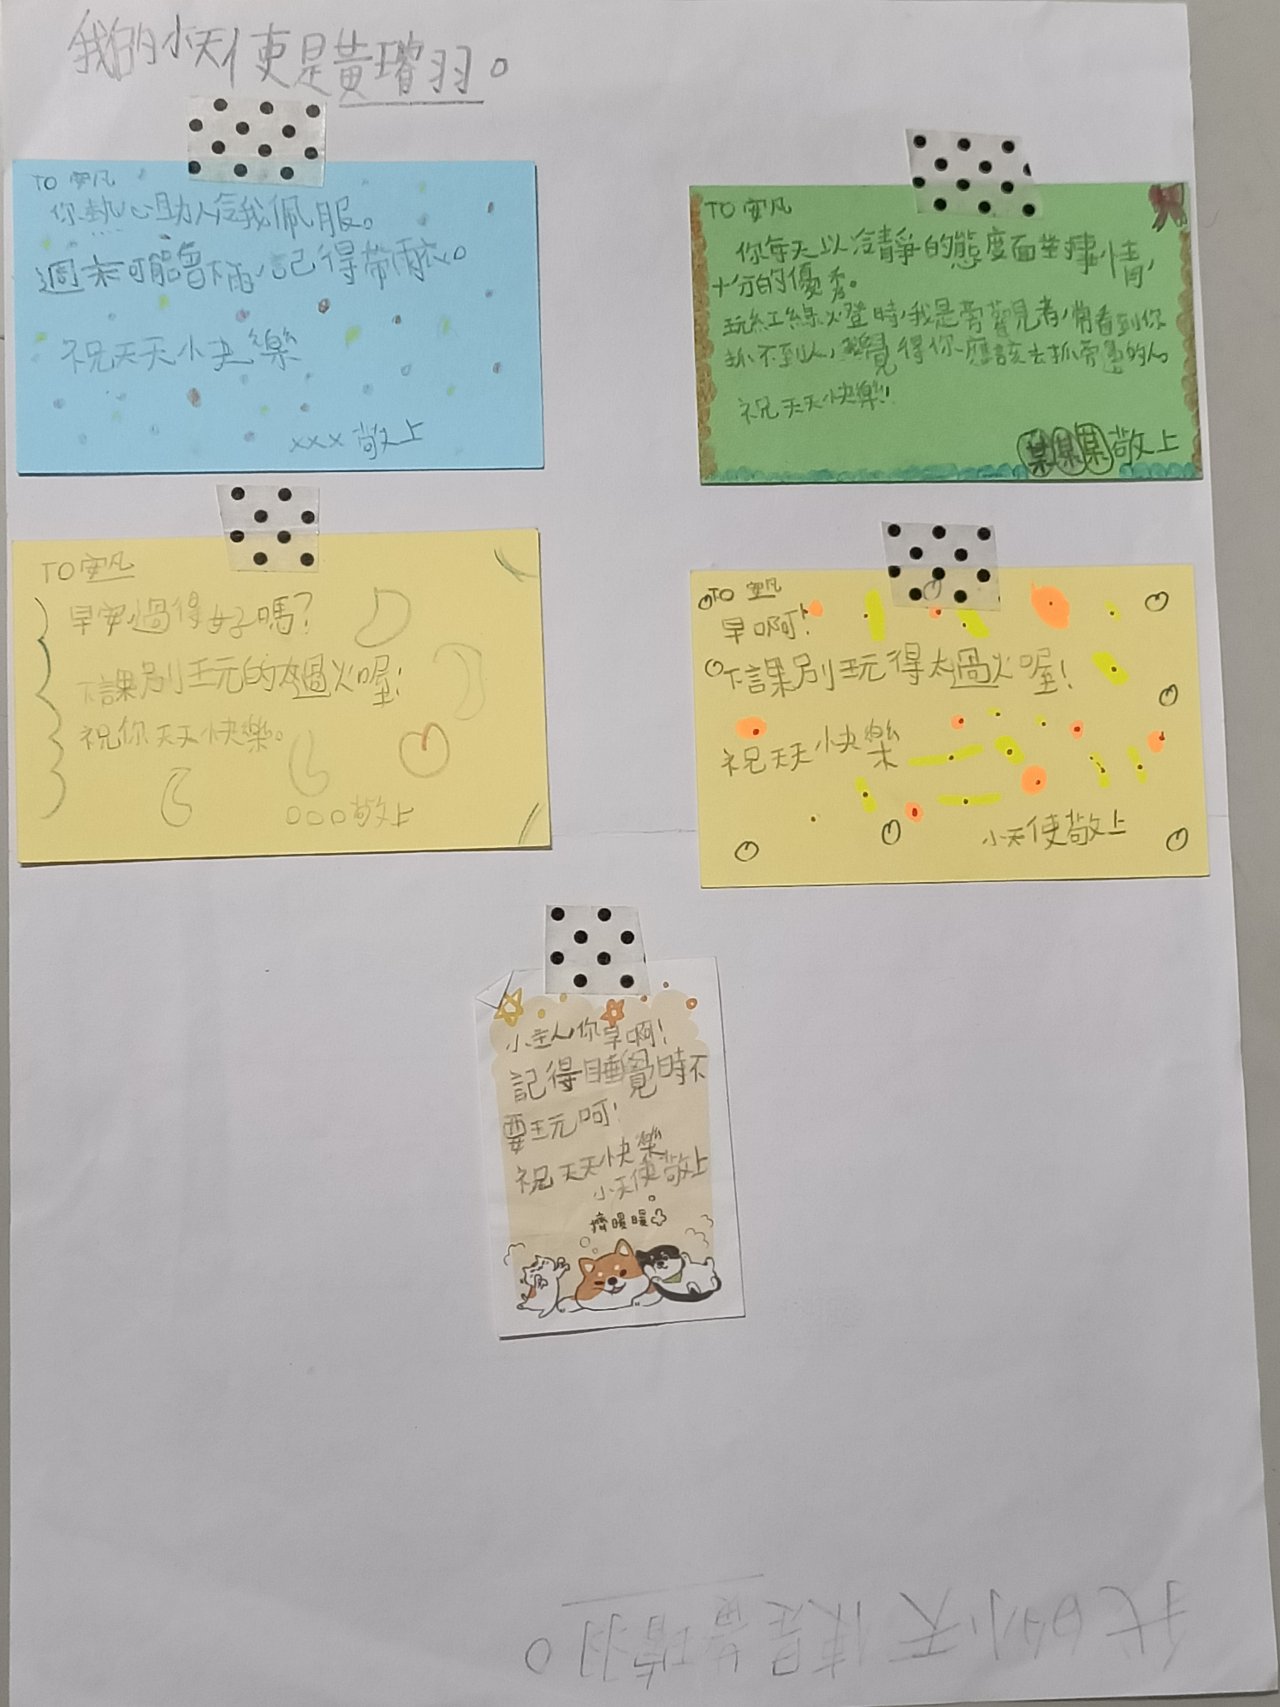 我的小天使是黃璿羽。
TO 安凡
你熱心助人令我佩服。
週末可能會下雨,記得帶雨衣。
祝天天小快樂
xxx 敬上
TO 安凡
你每天以冷靜的態度面對事情,
十分的優秀。
玩紅綠燈時,我是旁觀者,常看到你
抓不到人,我覺得你應該去抓旁邊的人
祝天天快樂!!
某某某敬上
TO 安凡
早安,過得好嗎?
下課別玩的太過火喔!
祝你天天快樂。
○○○敬上
TO 安凡
早啊!
下課別玩得太過火喔!
祝天天快樂
小天使敬上
小主人你早啊!
記得睡覺時不
要玩呵!
祝天天快樂
小天使敬上
擠暖暖
我的小天使是黃璿羽。